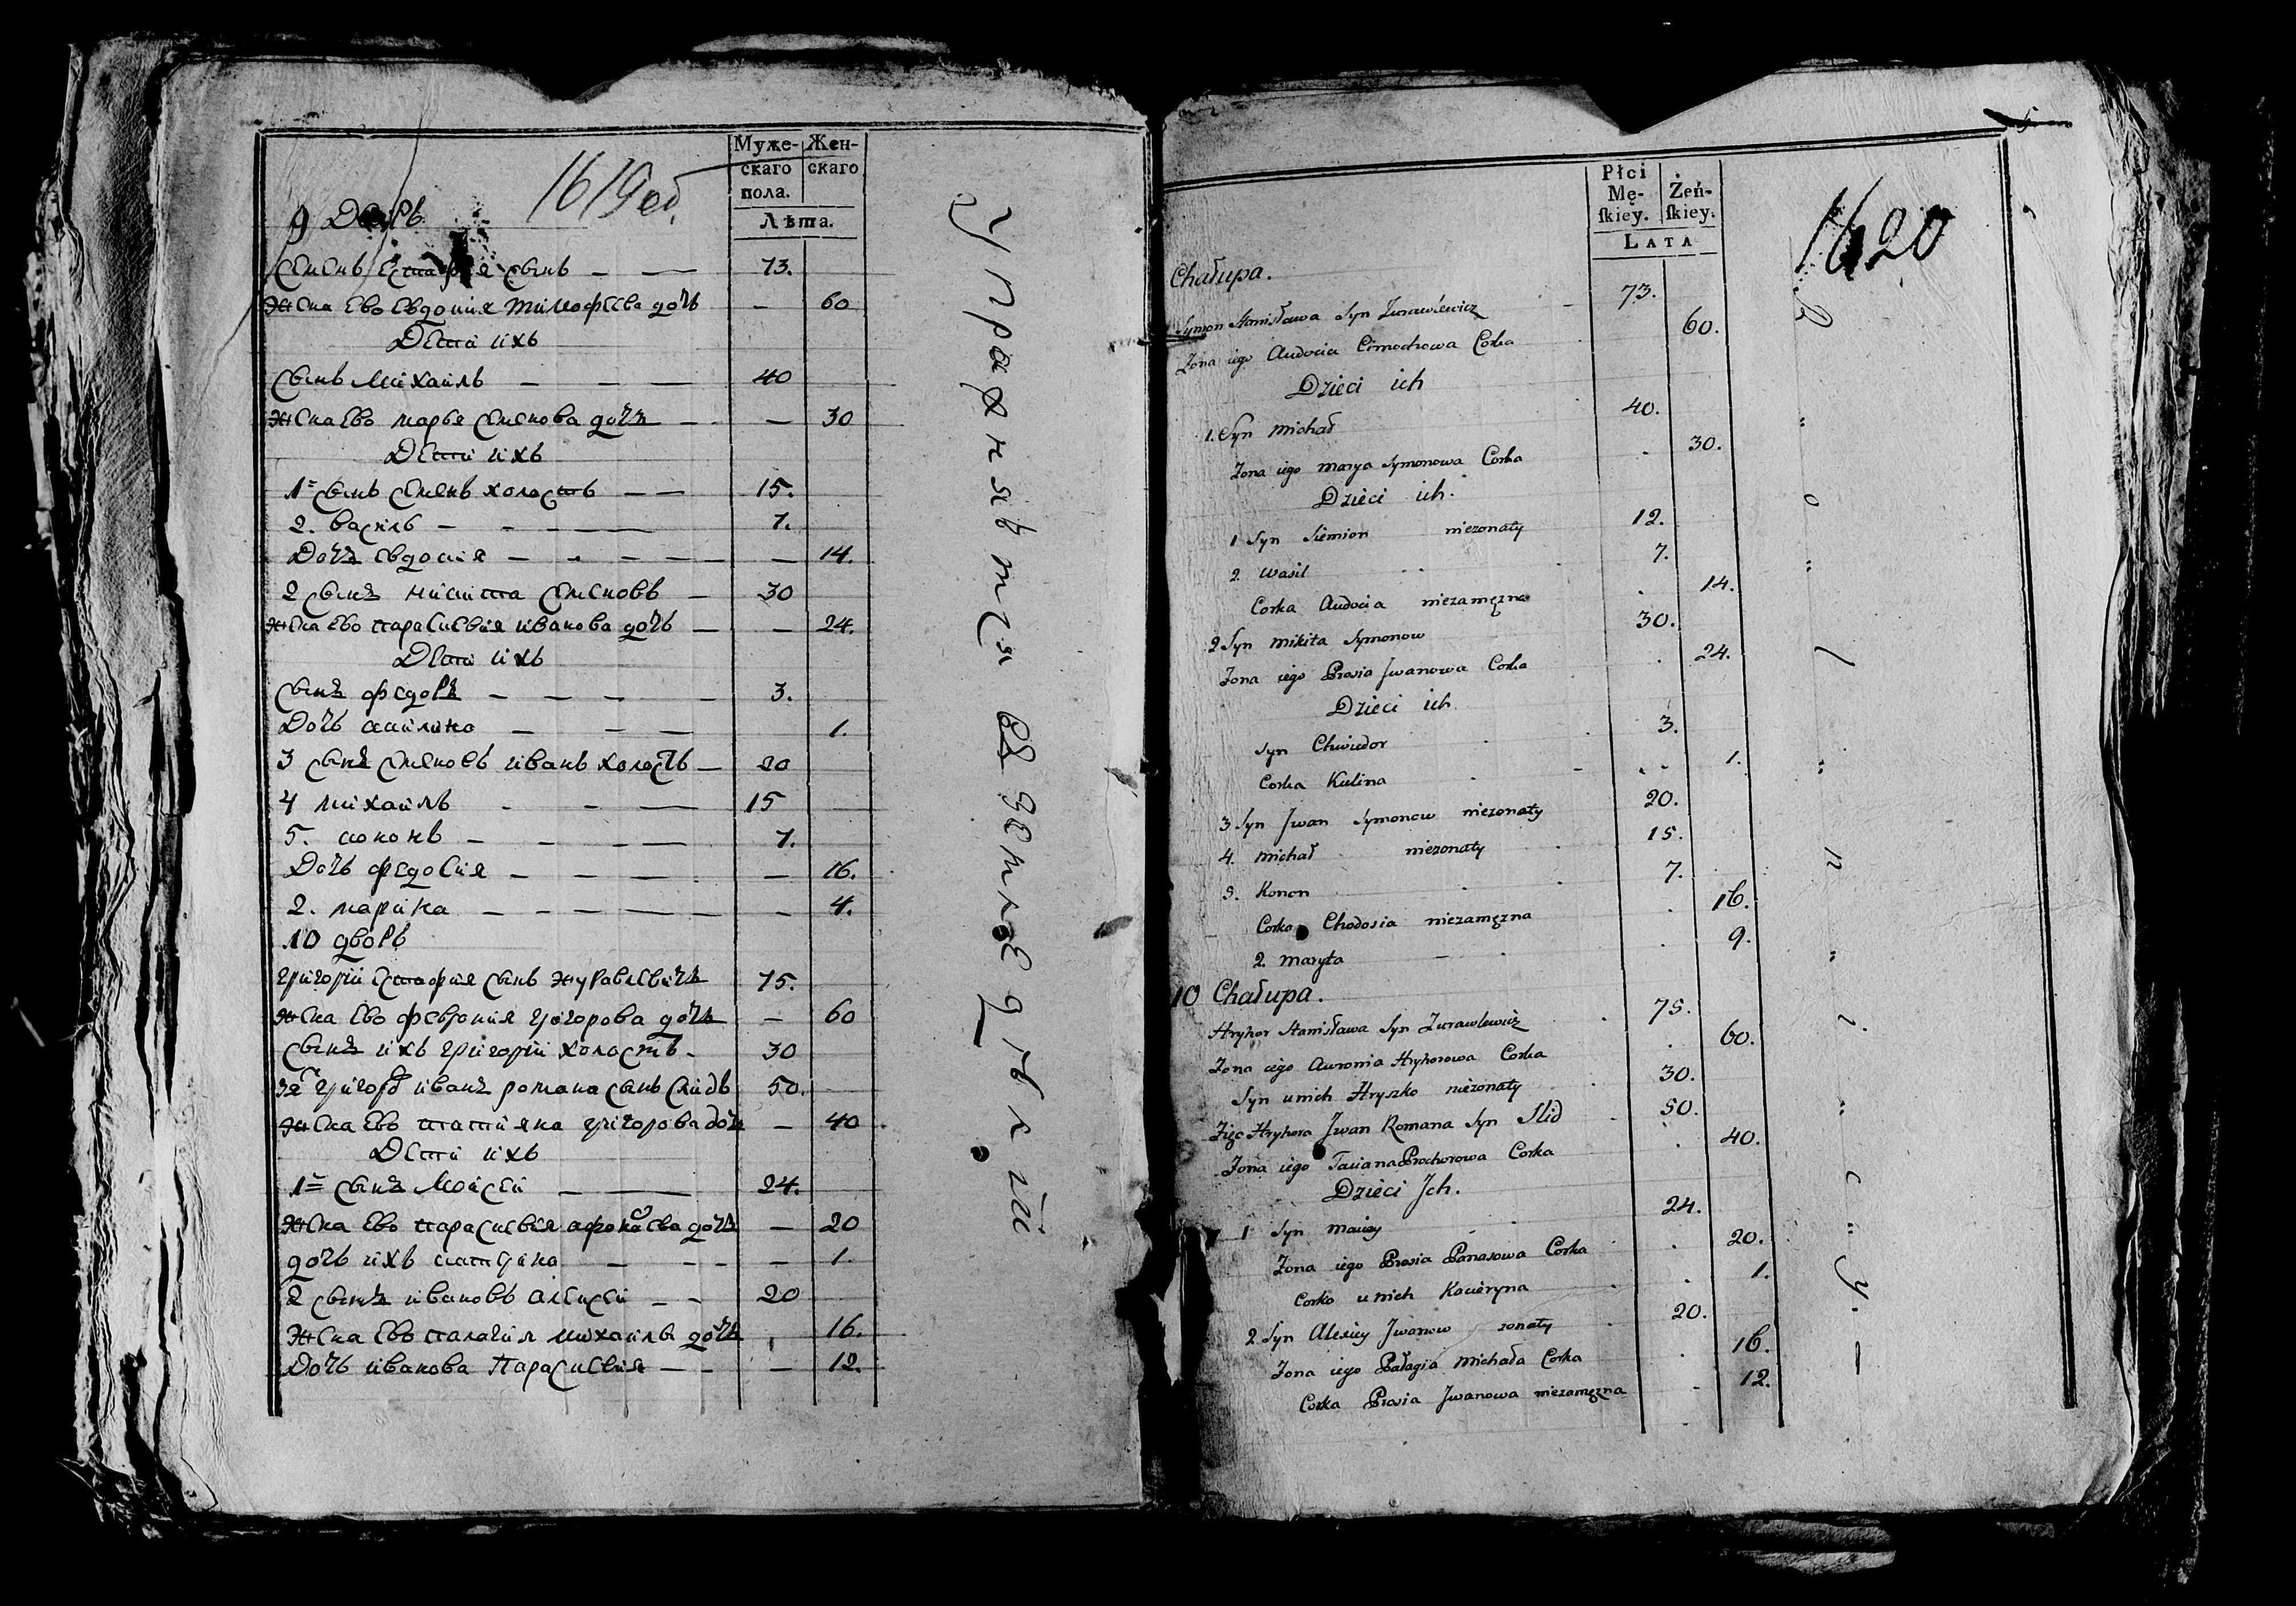 Муже-
скаго
пола.
Жен-
скаго
Лѣта.
1619 об.
9 Дворъ
семенъ сынъ — — 73.
жена ево евдокия тимофеева дочь — 60
Дети ихъ
сынъ михаилъ — — — 40
жена ево марья семенова дочъ — — — 30
Дети ихъ
1 сынъ семенъ холостъ — — 15.
2. василь — — — 7.
Дочъ евдокия — — — — 14.
2 сынъ никита семеновъ — 30
жена ево параскевия иванова дочь — — 24.
Дети ихъ
сынъ федоръ — — — — 3.
Дочь акилина — — — 1.
3 сынъ семеновъ иванъ холостъ — 20
4 михаилъ — — — 15
5. кононъ — — — — 7.
Дочь федосия — — — — — 16.
2. марина — — — — — — 4.
10 дворъ
григорий сынъ журавлевичъ 75.
жена ево феврония григорова дочь — 60
сынъ ихъ григорий холостъ — 30
иванъ романа сынъ слидъ 50.
жена ево татияна григорова дочь — 40
Дети ихъ
1 сынъ Моисей — — 24.
жена ево параскевия афонасева дочъ — 20
дочь ихъ катерина — — — — 1.
2 сынъ ивановъ алексей — — 20
жена ево палагия михаила дочъ 16.
Дочь иванова Параскевия — — — 12.
Упражняются в земледелии
Płci
Mę-
ſkiey.
Żeń-
ſkiey.
LATA
1620
Chałupa.
Symon Stanisława Syn Zurawlewicz 73.
Zona iego Audocia Cimochowa Corka 60.
Dzieci ich
1. Syn Michał 40.
Zona iego Marya Symonowa Corka 30.
Dzieci ich.
1 Syn Siemion niezonaty 12.
2. Wasil 7.
Corka Audocia niezamęzna 14.
2 Syn Mikita Symonow 30.
Zona iego Prosia Jwanowa Corka 24.
Dzieci ich
Syn Chwiedor 3.
Corka Kulina 1.
3 Syn Jwan Symonow niezonaty 20.
4. Michał niezonaty 15.
5. Konon 7.
Corka Chodosia niezamęzna 16.
2. Maryta 9.
10 Chałupa.
Hryhor Stanisława Syn Zurawlewicz 75.
Zona iego Auronia Hryhorowa Corka 60.
Syn u nich Hryszko niezonaty 30.
Zięc Hryhora Jwan Romana Syn Slid 50.
Zona iego Taciana Prochorowa Corka 40.
Dzieci Jch.
1 Syn Maisey 24.
Zona iego Prosia Panasowa Corka 20.
Corka u nich Kacieryna 1.
2. Syn Alexiey Jwanow zonaty 20.
Zona iego Pałagia Michała Corka 16.
Corka Prosia Jwanowa niezamęzna 12.
R " o " l " n " i " c " y. —